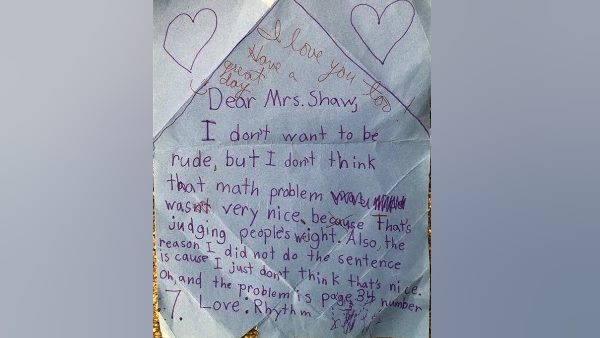 I love you too!
Have a
great
day
Dear Mrs. Shaw,
I don't want to be
rude, but I don't think
that math problem
wasn't very nice because That's
judging people's wight. Also, the
reason I did not do the sentence
is cause I just don't think that's nice.
Oh, and the problem is page 34 number
7. Love: Rhythm